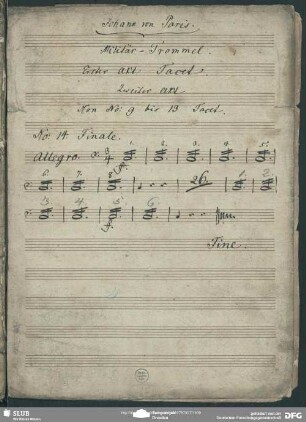 Johann von Paris.
Militär-Trommel.
Erster Akt Tacet.
Zweiter Akt.
Von No: 9 bis 13 Tacet.
No: 14 Finale.
Allegro. 3/4 1. 2. 3. 4. 5.
6. 7. 8. 26. 1. 2
3 4 5 6
Fine.
SLUB
DFG